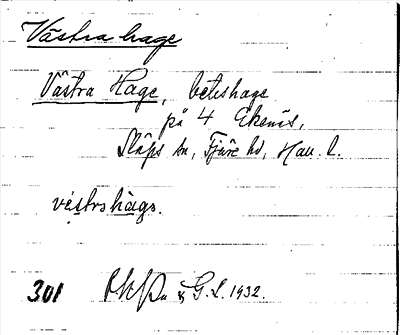 Västra hage
Västra Hage, beteshage
på 4 Ekenäs,
Släps sn, Fjäre hd, Hall. l.
västrs hàgs.
301 G. L. 1932.